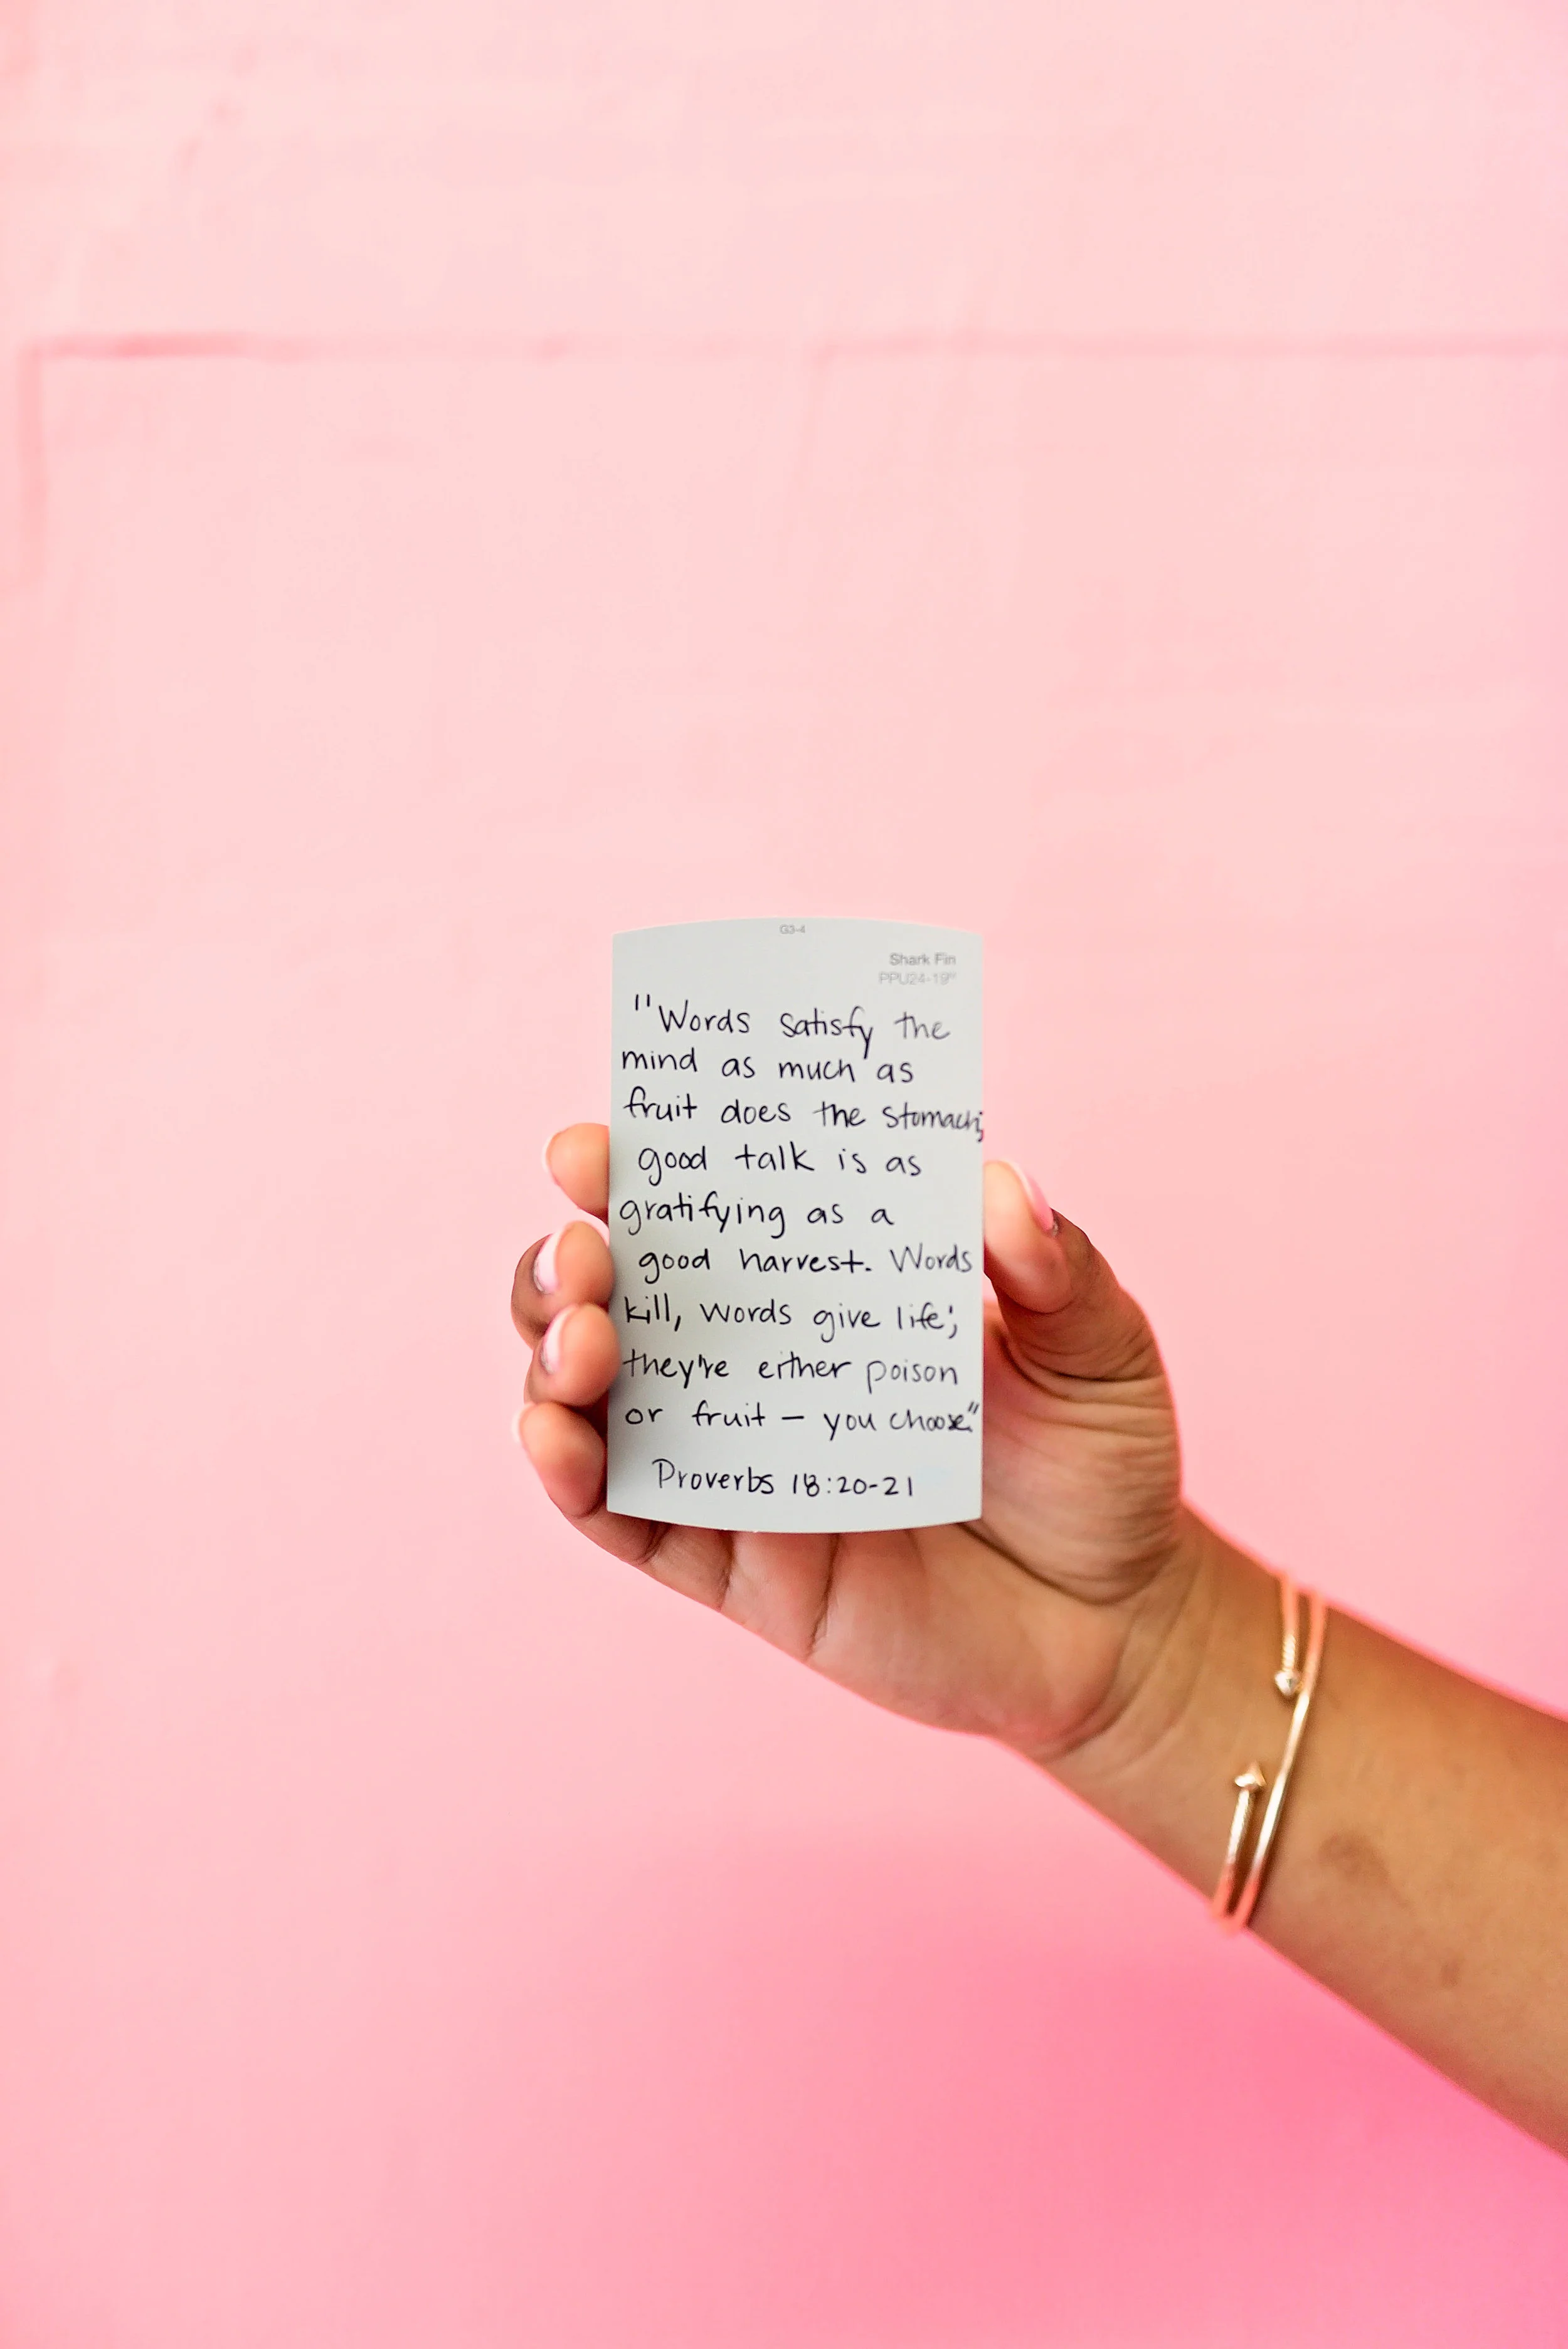 G3-4
Shark Fin
PPU24-19
"Words satisfy the
mind as much as
fruit does the stomach;
good talk is as
gratifying as a
good harvest. Words
kill, words give life;
they're either poison
or fruit – you choose."
Proverbs 18:20-21